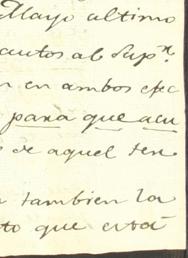 Mayo ultimo
autos al Supr.
n en ambos efec
para que acu
de aquel ten
tambien la
to que está